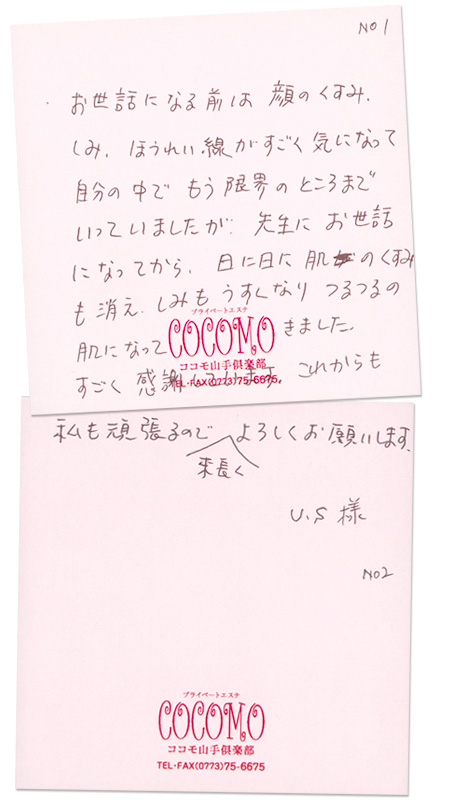 NO1
・お世話になる前は 顔のくすみ、
しみ、ほうれい線がすごく気になって
自分の中で もう限界のところまで
いっていましたが、先生に お世話
になってから、日に日に 肌のくすみ
も消え、しみも うすくなり つるつるの
肌になって きました。
プライベートエステ
COCOMO
ココモ山手倶楽部
TEL・FAX(0773)75-6675
すごく 感謝しています。これからも
私も頑張るので よろしくお願いします。
末長く
U.S 様
NO2
プライベートエステ
COCOMO
ココモ山手倶楽部
TEL・FAX(0773)75-6675